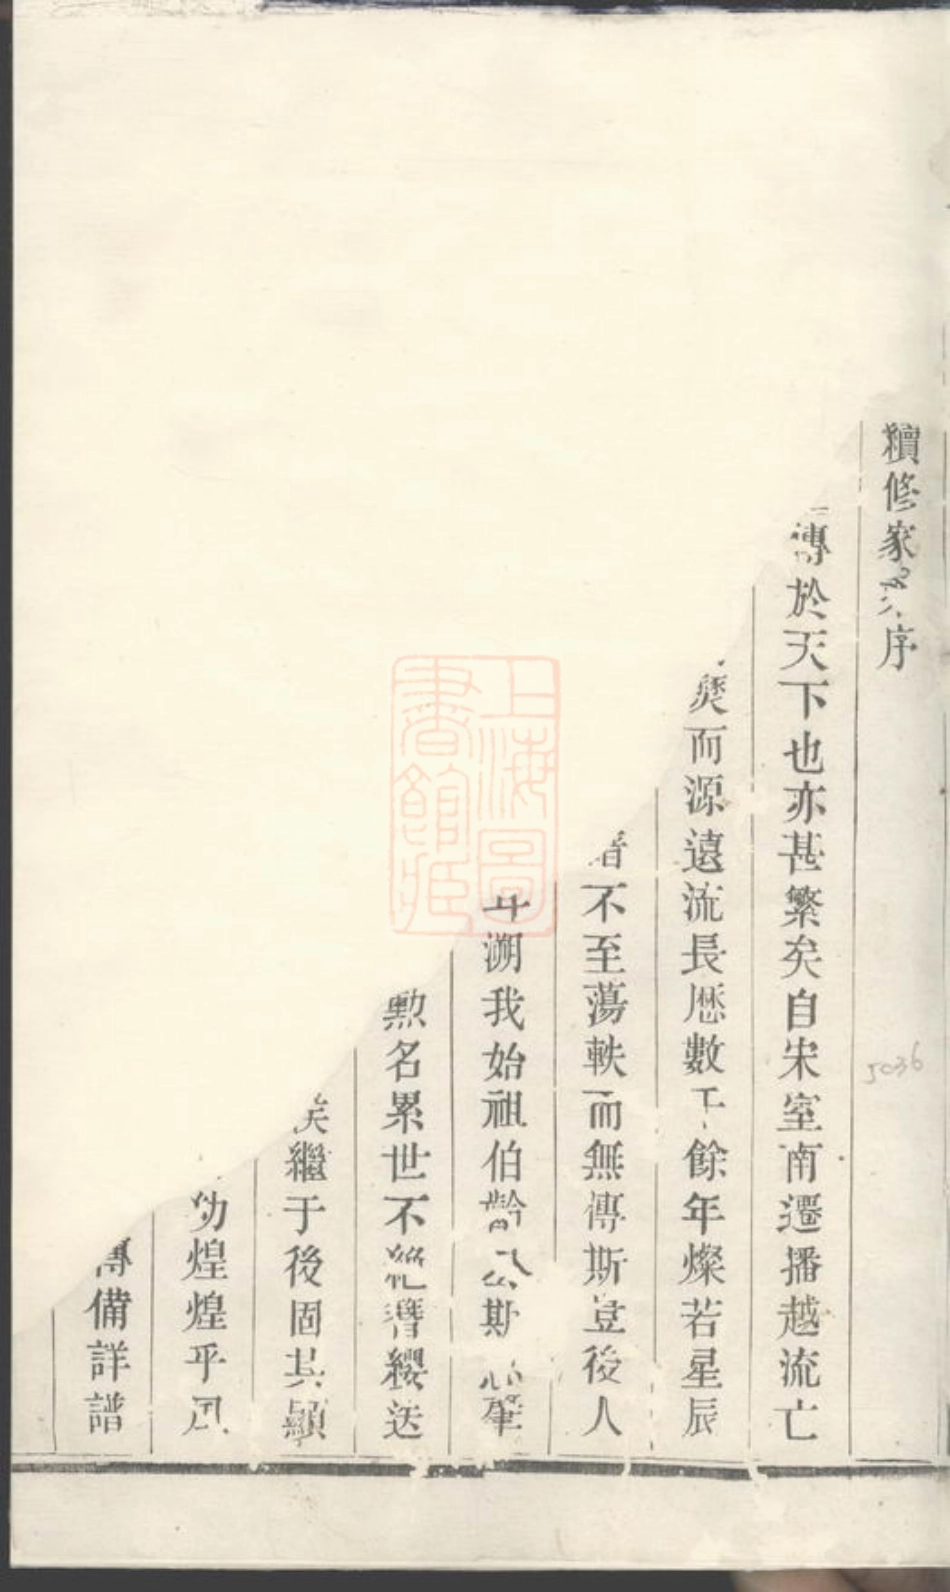 續修家序
傳於天下也亦甚繁矣自宋室南遷播越流亡
而源遠流長歷數千餘年燦若星辰
不至蕩軼而無傳斯豈後人
溯我始祖伯齡公斯肇
勲名累世不絶簪纓迭
繼于後固其顯
煌煌乎
傳備詳譜
上海圖書館藏
5036